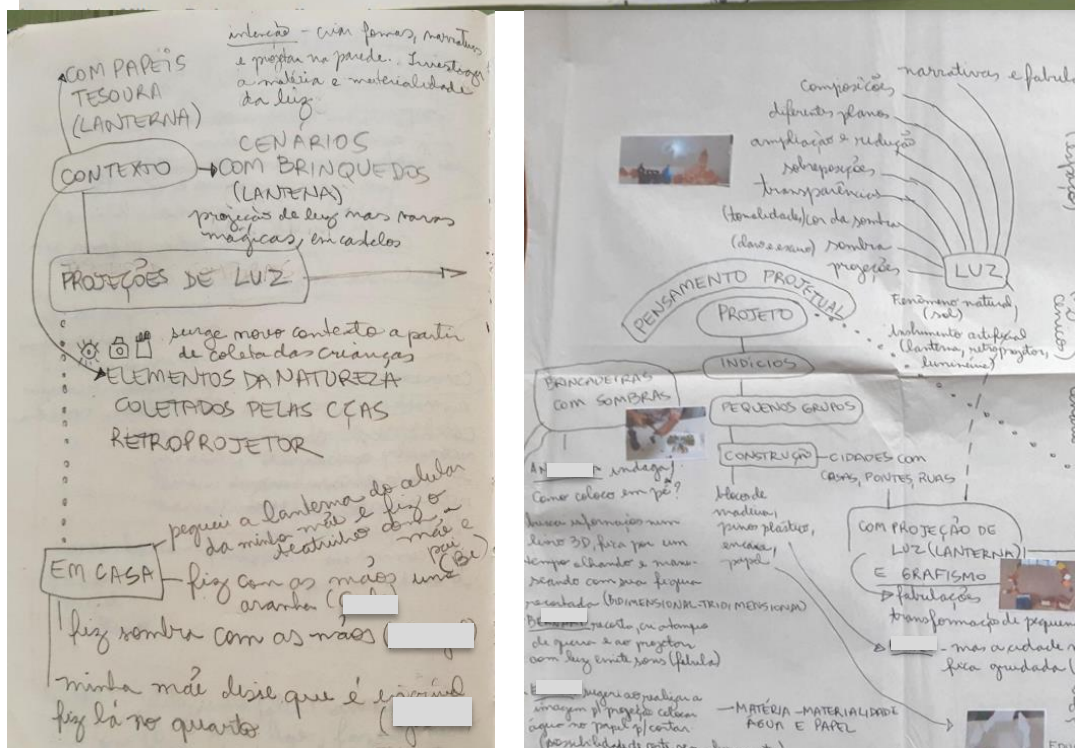 intenção - criar formas, narrativas
e projetar na parede. Investigar
a matéria e materialidade
da luz
COM PAPÉIS
TESOURA
(LANTERNA)
CONTEXTO
CENÁRIOS
COM BRINQUEDOS
(LANTENA)
projeção de luz nas varas
mágicas, em castelos
PROJEÇÕES DE LUZ
surge novo contexto a partir
de coleta das crianças
ELEMENTOS DA NATUREZA
COLETADOS PELAS CÇAS
RETROPROJETOR
EM CASA
peguei a lanterna do celular
da minha mãe e fiz o
teatrinho com a
mãe e
pai
(Be)
fiz com as mãos uma
aranha (
fiz sombra com as mãos (
minha mãe disse que é incrível
fiz lá no quarto (
narrativas e fabula
composições
diferentes planos
ampliação e redução
sobreposições
transparências
(tonalidades) cor da sombra
(claro e escuro) sombra
projeções
LUZ
Fenômeno natural,
(sol)
Instrumento artificial
(lanterna, retroprojetor,
luminária)
PENSAMENTO PROJETUAL
PROJETO
INDÍCIOS
PEQUENOS GRUPOS
CONSTRUÇÃO
CIDADES COM
CASAS, PONTES, RUAS
bloco de
madeira,
pino plástico,
encaixe,
papel
COM PROJEÇÃO DE
LUZ (LANTERNA)
E GRAFISMO
fabulações
transformação de pequen
- mas a cidade n
fica grudada (
BRINCADEIRAS
COM SOMBRAS
indaga!
Como coloco em pé?
busca informação num
livro 3D, fica por um
tempo olhando e manu-
seando com sua figura
recortada (BIDIMENSIONAL-TRIDIMENSIONAL)
recorta,
e ao projetar
com luz emite sons (fábula)
sugeriu ao realizar a
imagem p/ projeção colocar
água no papel p/ cortar.
(possibilidade de corte
MATÉRIA-MATERIALIDADE
ÁGUA E PAPEL